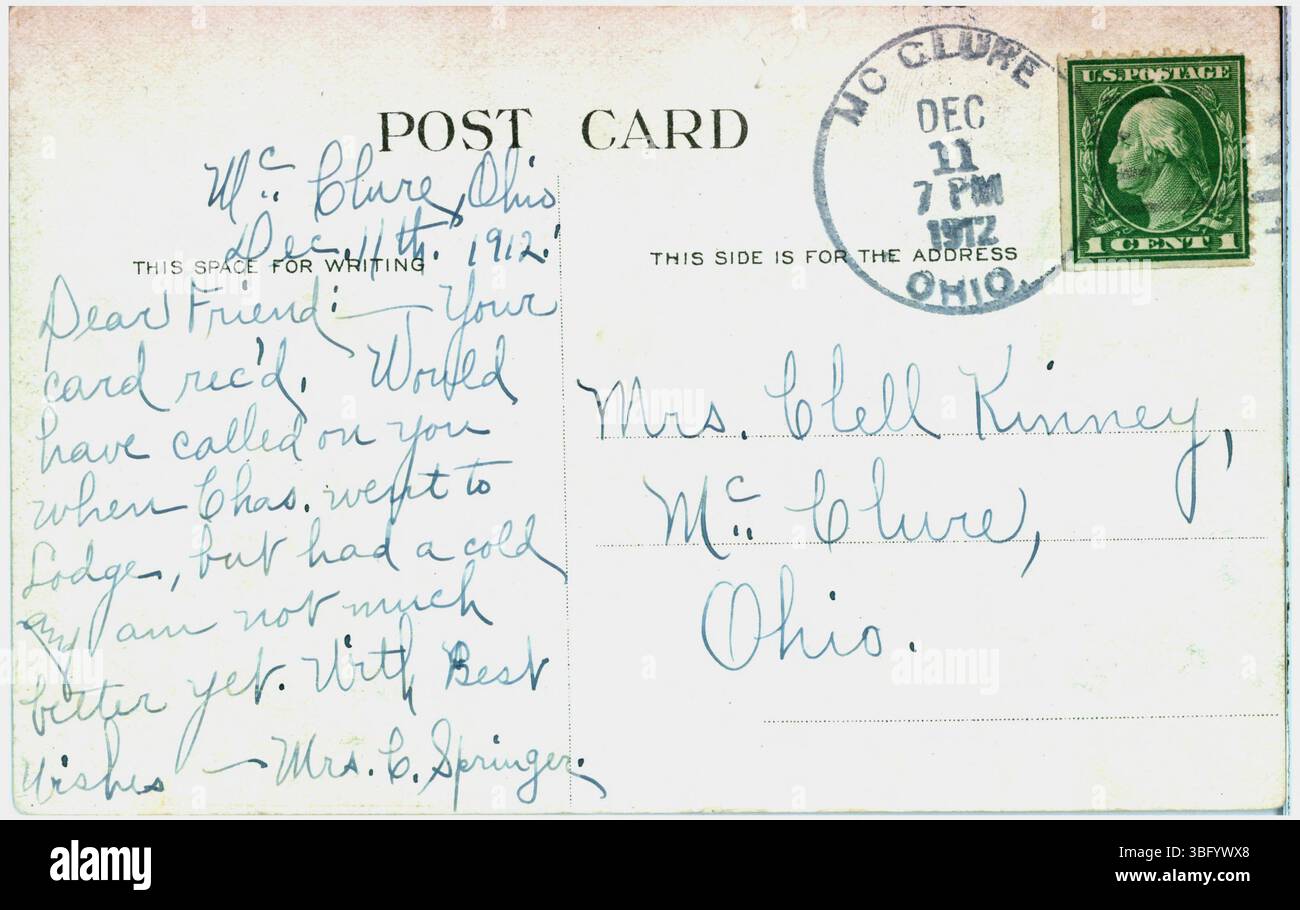 POST CARD
Mc. Clure, Ohio
Dec. 11th. 1912.
THIS SPACE FOR WRITING
Dear Friend:— Your
card rec'd. Would
have called on you
when Chas. went to
Lodge, but had a cold
and am not much
better yet. With Best
Wishes — Mrs. C. Springer.
MC CLURE
DEC
11
7 PM
1912
OHIO.
U.S. POSTAGE
1 CENT 1
THIS SIDE IS FOR THE ADDRESS
Mrs. Clell Kinney,
Mc. Clure,
Ohio.
alamy
Image ID: 3BFYWX8
www.alamy.com